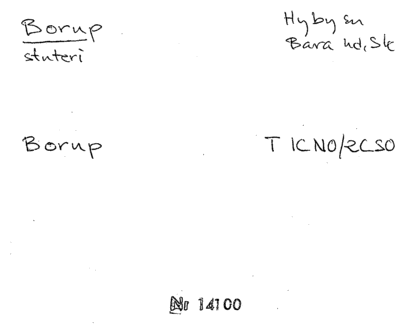 Borup
stuteri
Hyby sn
Bara hd, Sk
Borup
T 1CNO/2CSO
Nr 14100